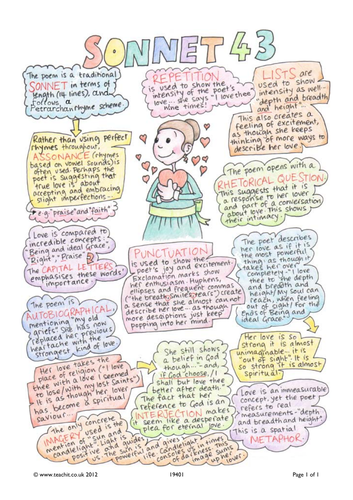 SONNET 43
The poem is a traditional
SONNET in terms of
length (14 lines), and
follows a
Petrarchan rhyme scheme.
REPETITION
is used to show the
intensity of the poet's
love - she says "I love thee
nine times!
LISTS are
used to show
intensity as well -
"depth and breadth
and height".
This also creates a
feeling of excitement,
as though she keeps
thinking of more ways to
describe her love.
Rather than using perfect
rhymes throughout,
ASSONANCE (rhymes
based on vowel sounds) is
often used. Perhaps the
poet is suggesting that
true love is about
accepting and embracing
slight imperfections -
e.g. praise and faith"
The poem opens with a
RHETORICAL QUESTION.
This suggests that it is
a response to her lover
and part of a conversation
about love. This shows
their intimacy.
Love is compared to
incredible concepts:
"Being and ideal Grace",
"Right", "Praise"
The CAPITAL LETTERS
emphasises these words'
importance
PUNCTUATION
is used to show the
poet's joy and excitement.
Exclamation marks show
her enthusiasm. Hyphens,
ellipses and frequent commas
("the breath, smiles, tears") create a
sense that she almost can not
describe her love - as though
more descriptions just keep
popping into her mind
The poet describes
her love as if it is
the most powerful
thing; as though it
takes her over
completely - "I love
thee to the depth
and breadth and
height / My soul can
reach, when feeling
out of sight / For the
ends of Being and
ideal Grace"
The poem is
AUTOBIOGRAPHICAL,
mentioning "my old
griefs". She has now
replaced her previous
heartache with the
strongest kind of love
Her love is so
strong it is almost
unimaginable - it is
"out of sight". It is
so strong it is almost
spiritual!
Her love takes the
place of religion ("I love
thee with a love I seemed
to lose / with my lost Saints")
It is as though her lover
has become a spiritual
saviour.
She still shows
a belief in God
though... "- and,
if God choose, / I
shall but love thee
better after death.
The fact that her
reference to God is an
INTERJECTION makes it
seem like a desperate
plea for eternal
love
Love is an immeasurable
concept, yet the poet
refers to real
measurements - "depth
and breadth and height".
This is a spatial
METAPHOR.
The only concrete
IMAGERY used is the
mention of "sun and
candlelight".
© www.teachit.co.uk 2012
19401
Page 1 of 1